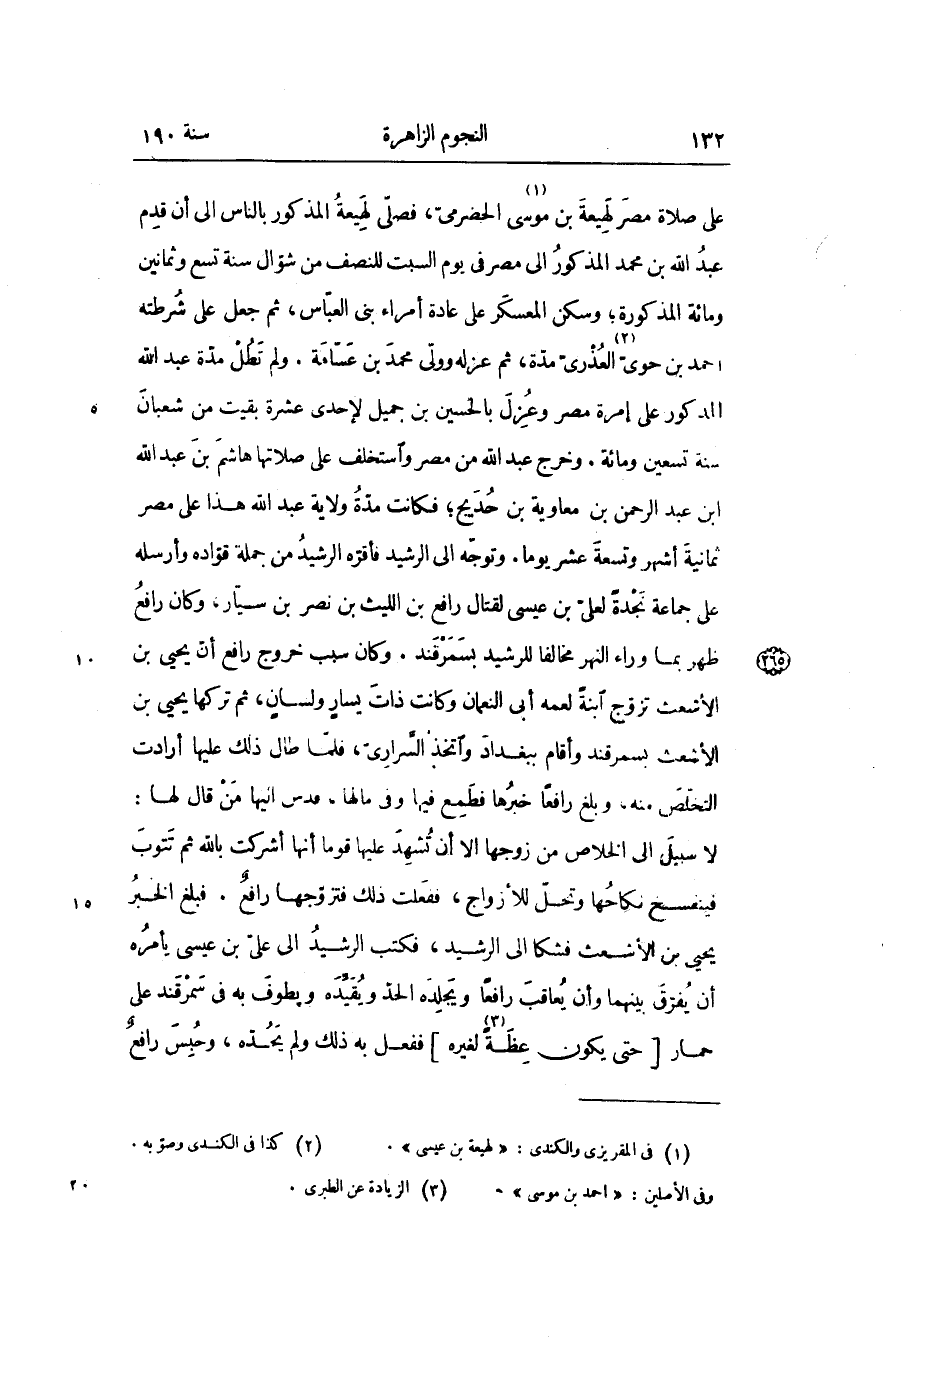 ١٣٢ النجوم الزاهرة سنة ١٩٠
على صلاة مصرَ لَهِيعةَ بن موسى (١) الحضرمىّ، فصلّى لَهِيعةُ المذكور بالناس الى أن قدِم
عبدُ الله بن محمد المذكورُ الى مصر فى يوم السبت للنصف من شوّال سنة تسع وثمانين
ومائة المذكورة؛ وسكن المعسكَر على عادة أمراء بنى العبّاس، ثم جعل على شُرطته
احمد بن حوىّ (٢) العُذْرىّ مدّة، ثم عزله وولّى محمدَ بن عَسّامَة . ولم تَطُلْ مدّة عبد الله
المذكور على إمرة مصر وعُزِلَ بالحسين بن جميل لإحدى عشرة بقيت من شعبانَ ٥
سنة تسعين ومائة . وخرج عبد الله من مصر وٱستخلف على صلاتها هاشمَ بنَ عبد الله
ابن عبد الرحمن بن معاوية بن حُدَيج؛ فكانت مدّةُ ولاية عبد الله هذا على مصر
ثمانيةَ أشهر وتسعةَ عشر يوما. وتوجّه الى الرشيد فأقرّه الرشيدُ من جملة قوّاده وأرسله
على جماعة نَجْدةً لعلىّ بن عيسى لقتال رافع بن الليث بن نصر بن سيّار، وكان رافعُ
ظهر بما وراء النهر مخالفا للرشيد بسَمَرْقَند . وكان سبب خروج رافع أنّ يحيى بن ١٠ ٢٦٥
الأشعث تزوّج ٱبنةً لعمه أبى النعمان وكانت ذاتَ يسارٍ ولسانٍ، ثم تركها يحيى بن
الأشعث بسمرقند وأقام ببغدادَ وٱتخذ السَّرارىّ، فلمّا طال ذلك عليها أرادت
التخلّصَ منه. وبلغ رافعًا خبرُها فطَمِع فيها وفى مالها، فدسّ اليها مَنْ قال لها :
لا سبيلَ الى الخلاص من زوجها الا أن تُشهِدَ عليها قوما أنها أشركت بالله ثم تَتوبَ
فينفسخ نكاحُها وتحلّ للأزواج، ففعلت ذلك فتزوّجها رافعٌ . فبلغ الخبرُ ١٥
يحيى بن الأشعث فشكا الى الرشيد، فكتب الرشيدُ الى علىّ بن عيسى يأمرُه
أن يُفرّقَ بينهما وأن يُعاقبَ رافعًا ويَجلِدَه الحدّ ويُقَيّدَه ويطوفَ به فى سَمَرْقَند على
حمار [ حتى يكون عِظَةً (٣) لغيره ] ففعل به ذلك ولم يَحُدّه، وحُبِسَ رافعٌ
(١) فى المقريزى والكندى : « لهيعة بن عيسى » . (٢) كذا فى الكندى وصوّبه .
وفى الأصلين : « احمد بن موسى » . (٣) الزيادة عن الطبرى . ٢٠